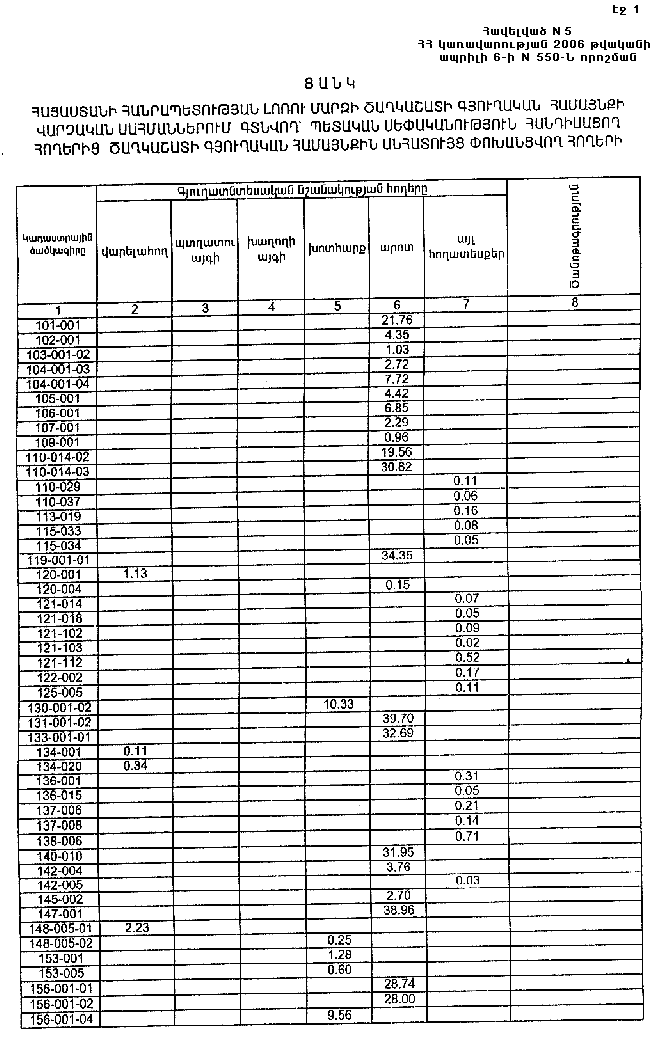 Էջ 1
Հավելված N 5
ՀՀ կառավարության 2006 թվականի
ապրիլի 6-ի N 550-Ն որոշման
ՑԱՆԿ
ՀԱՅԱՍՏԱՆԻ ՀԱՆՐԱՊԵՏՈՒԹՅԱՆ ԼՈՌՈՒ ՄԱՐԶԻ ԾԱՂԿԱՇԱՏԻ ԳՅՈՒՂԱԿԱՆ ՀԱՄԱՅՆՔԻ
ՎԱՐՉԱԿԱՆ ՍԱՀՄԱՆՆԵՐՈՒՄ ԳՏՆՎՈՂ՝ ՊԵՏԱԿԱՆ ՍԵՓԱԿԱՆՈՒԹՅՈՒՆ ՀԱՆԴԻՍԱՑՈՂ
ՀՈՂԵՐԻՑ ԾԱՂԿԱՇԱՏԻ ԳՅՈՒՂԱԿԱՆ ՀԱՄԱՅՆՔԻՆ ԱՆՀԱՏՈՒՅՑ ՓՈԽԱՆՑՎՈՂ ՀՈՂԵՐԻ
Գյուղատնտեսական նշանակության հողերը
կադաստրային
ծածկագիրը
վարելահող
պտղատու
այգի
խաղողի
այգի
խոտհարք
արոտ
այլ
հողատեսքեր
1 2 3 4 5 6 7 8
101-001 21.76
102-001 4.35
103-001-02 1.03
104-001-03 2.72
104-001-04 7.72
105-001 4.42
106-001 6.85
107-001 2.29
109-001 0.96
110-014-02 19.56
110-014-03 30.62
110-029 0.11
110-037 0.06
113-019 0.16
115-033 0.08
115-034 0.05
119-001-01 34.35
120-001 1.13
120-004 0.15
121-014 0.07
121-018 0.05
121-102 0.09
121-103 0.02
121-112 0.52
122-002 0.17
125-005 0.11
130-001-02 10.33
131-001-02 39.70
133-001-01 32.69
134-001 0.11
134-020 0.34
136-001 0.31
136-015 0.05
137-006 0.21
137-008 0.14
138-006 0.71
140-010 31.95
142-004 3.76
142-005 0.03
145-002 2.70
147-001 38.96
148-005-01 2.23
148-005-02 0.25
153-001 1.28
153-005 0.60
156-001-01 28.74
156-001-02 28.00
156-001-04 9.56